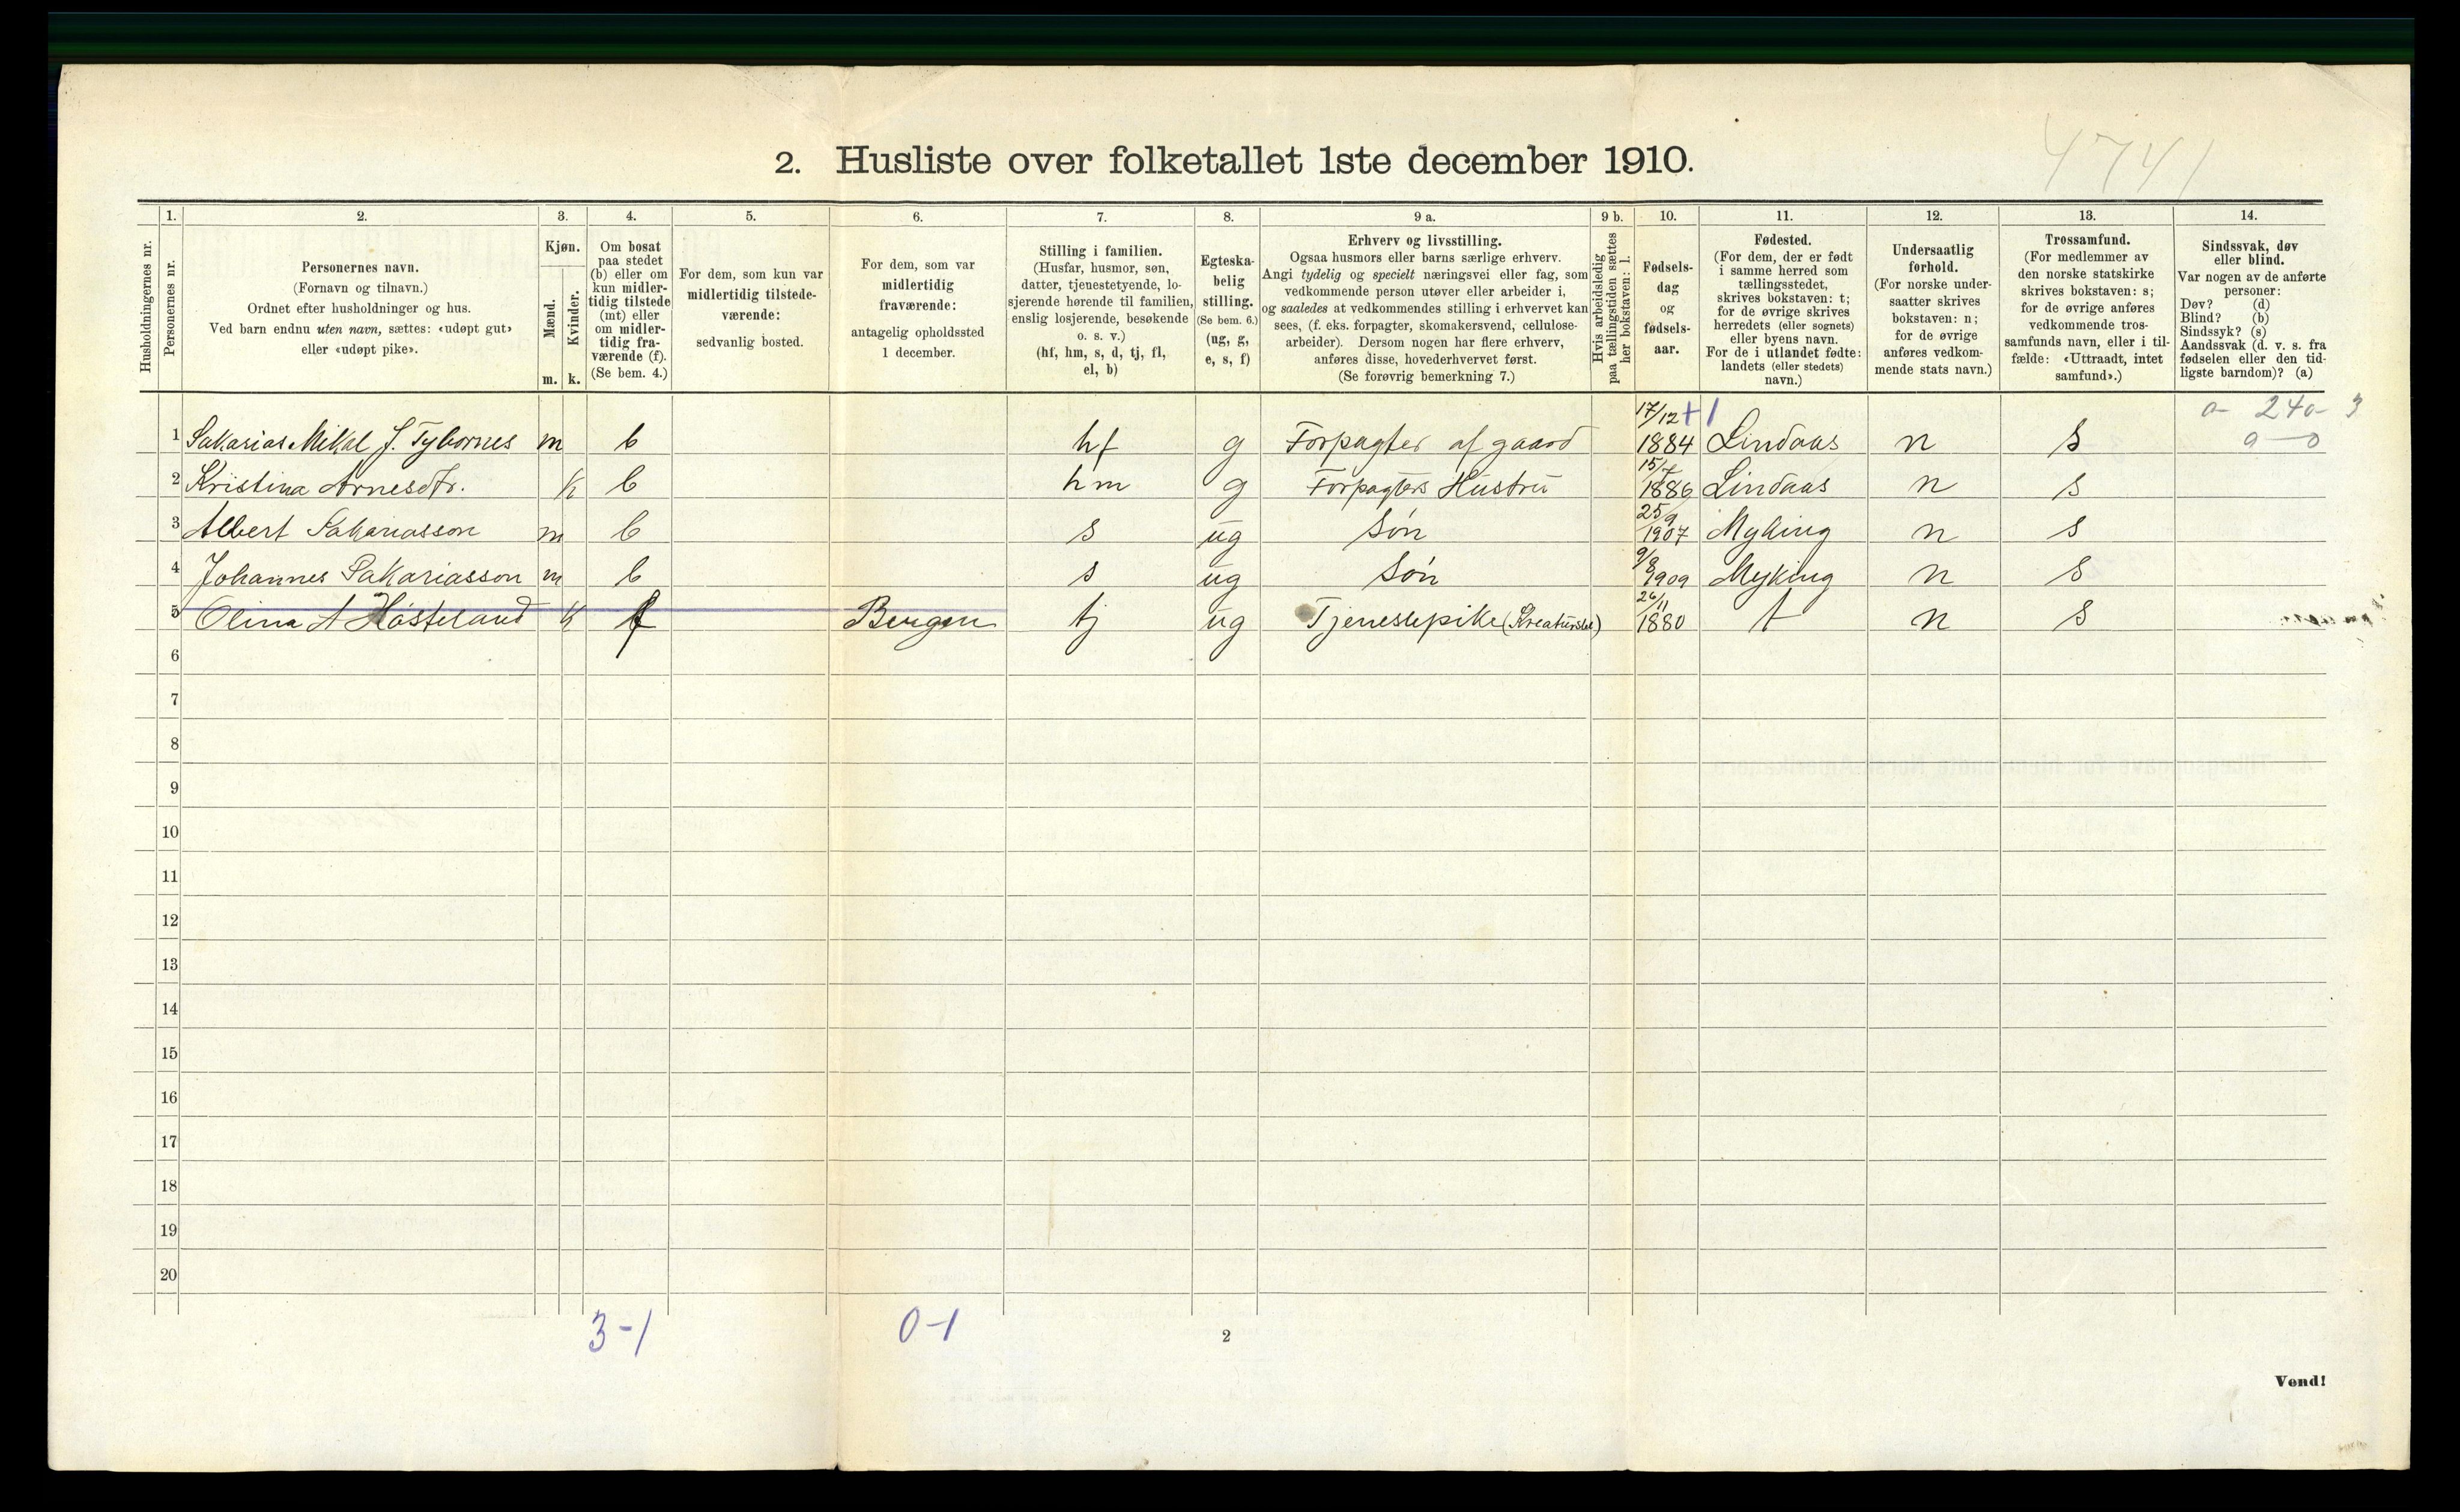 4741
2. Husliste over folketallet 1ste december 1910.
1. 2. 3. 4. 5. 6. 7. 8. 9 a. 9 b. 10. 11. 12. 13. 14.
Husholdningernes nr.
Personernes nr.
Personernes navn.
(Fornavn og tilnavn.)
Ordnet efter husholdninger og hus.
Ved barn endnu uten navn, sættes: «udøpt gut»
eller «udøpt pike».
Kjøn.
Mænd.
Kvinder.
m. k.
Om bosat
paa stedet
(b) eller om
kun midler-
tidig tilstede
(mt) eller
om midler-
tidig fra-
værende (f).
(Se bem. 4.)
For dem, som kun var
midlertidig tilstede-
værende:
sedvanlig bosted.
For dem, som var
midlertidig
fraværende:
antagelig opholdssted
1 december.
Stilling i familien.
(Husfar, husmor, søn,
datter, tjenestetyende, lo-
sjerende hørende til familien,
enslig losjerende, besøkende
o. s. v.)
(hf, hm, s, d, tj, fl,
el, b)
Egteska-
belig
stilling.
(Se bem. 6.)
(ug, g,
e, s, f)
Erhverv og livsstilling.
Ogsaa husmors eller barns særlige erhverv.
Angi tydelig og specielt næringsvei eller fag, som
vedkommende person utøver eller arbeider i,
og saaledes at vedkommendes stilling i erhvervet kan
sees, (f. eks. forpagter, skomakersvend, cellulose-
arbeider). Dersom nogen har flere erhverv,
anføres disse, hovederhvervet først.
(Se forøvrig bemerkning 7.)
Hvis arbeidsledig
paa tællingstiden sættes
her bokstaven: l.
Fødsels-
dag
og
fødsels-
aar.
Fødested.
(For dem, der er født
i samme herred som
tællingsstedet,
skrives bokstaven: t;
for de øvrige skrives
herredets (eller sognets)
eller byens navn.
For de i utlandet fødte:
landets (eller stedets)
navn.)
Undersaatlig
forhold.
(For norske under-
saatter skrives
bokstaven: n;
for de øvrige
anføres vedkom-
mende stats navn.)
Trossamfund.
(For medlemmer av
den norske statskirke
skrives bokstaven: s;
for de øvrige anføres
vedkommende tros-
samfunds navn, eller i til-
fælde: «Uttraadt, intet
samfund».)
Sindssvak, døv
eller blind.
Var nogen av de anførte
personer:
Døv? (d)
Blind? (b)
Sindssyk? (s)
Aandssvak (d. v. s. fra
fødselen eller den tid-
ligste barndom)? (a)
17/12 +1 0- 240- 3
1 Sakarias Mikal J. Tybornes m b hf g Forpagter af gaard 1884 Lindaas n s 0-0
15/7
2 Kristina Arnesdtr. k b hm g Forpagters Hustru 1886 Lindaas n s
25/9
3 Albert Sakariasson m b s ug Søn 1907 Myking n s
9/8
4 Johannes Sakariasson m b s ug Søn 1909 Myking n s
26/11
5 Olina A Hosteland k f Bergen tj ug Tjenestepike (Kreaturstel) 1880 t n s
6
7
8
9
10
11
12
13
14
15
16
17
18
19
20
3-1 0-1
2
Vend!